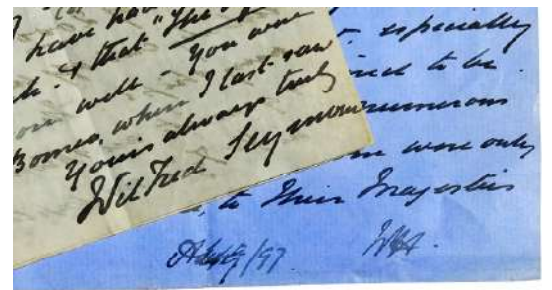 have ha
& that "The
well - You were
Borneo, when I last saw
Yours always truly
Wilfred Seymour
especially
to be
numerous
were only
to Their Majesties
/97